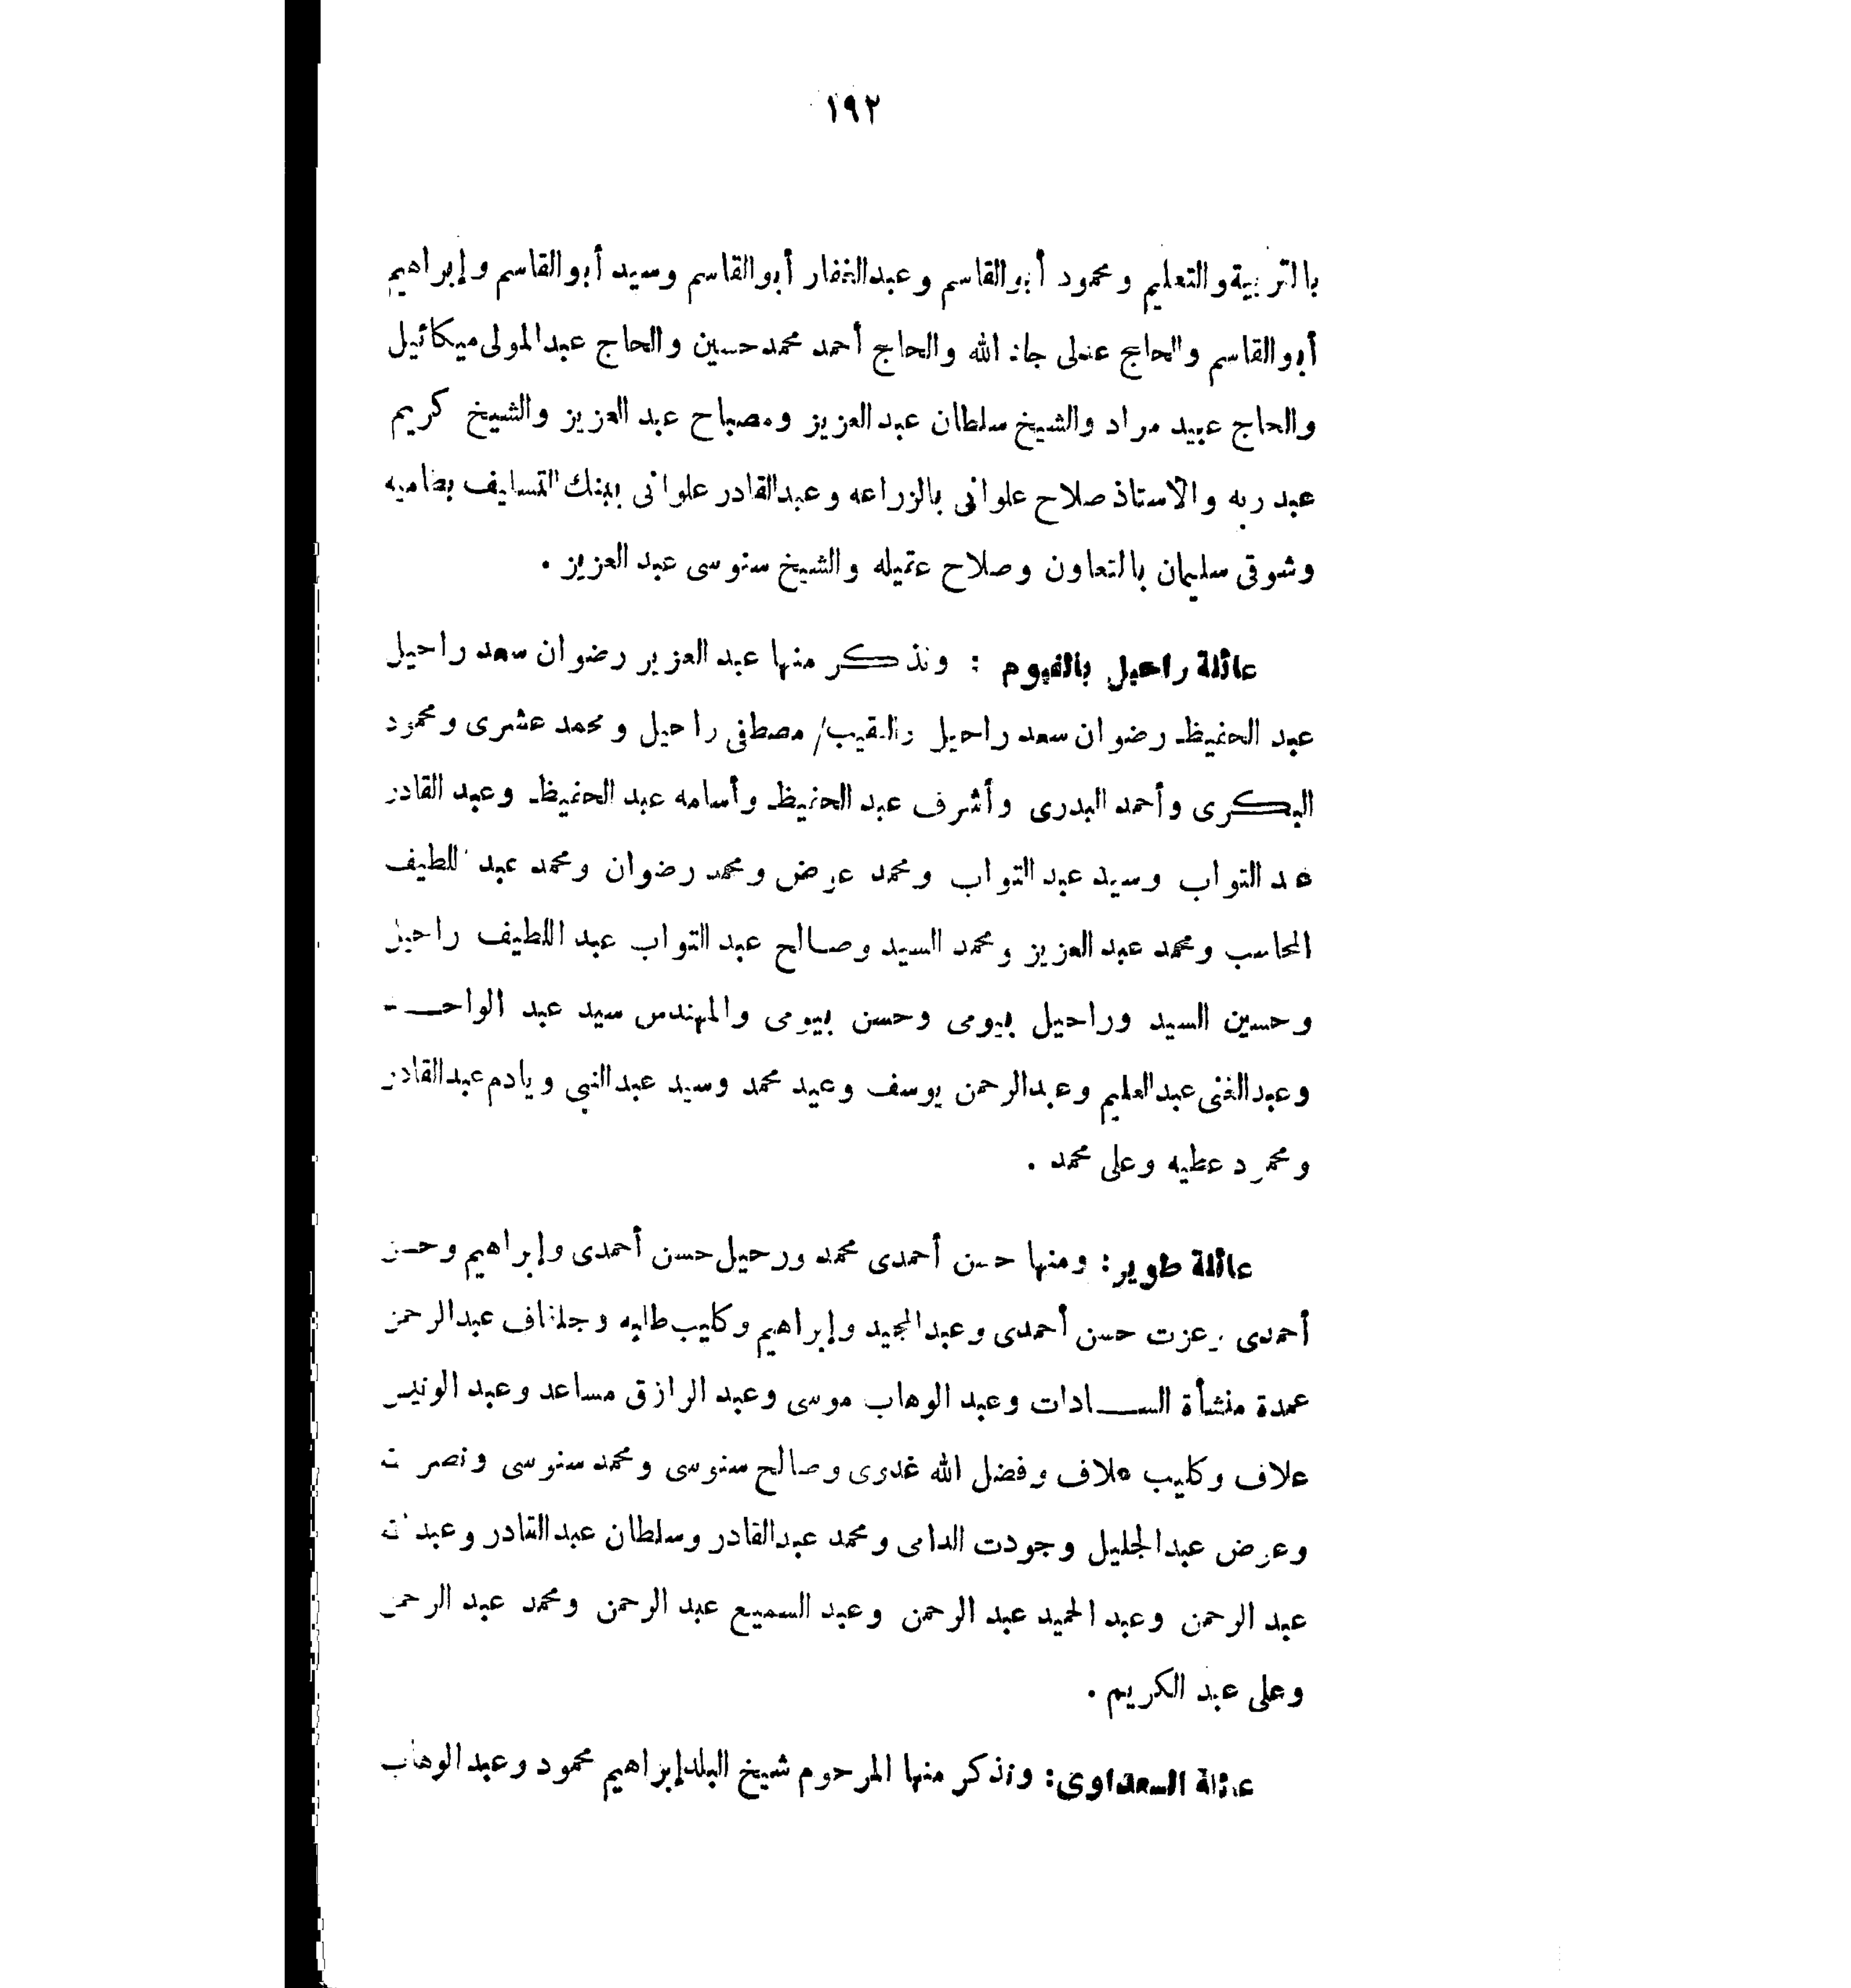 ١٩٢
بالتربية والتعليم ومحمود أبوالقاسم وعبدالغفار أبوالقاسم وسيد أبوالقاسم وإبراهيم
أبوالقاسم والحاج جاد الله والحاج أحمد محمد حسين والحاج عبدالمولى ميكائيل
والحاج عبيد مراد والشيخ سلطان عبدالعزيز ومصباح عبد العزيز والشيخ كريم
عبد ربه والاستاذ صلاح علوانى بالزراعه وعبدالقادر علوانى ببنك التسليف بطاميه
وشوقى سليمان بالتعاون وصلاح عتميله والشيخ سنوسى عبد العزيز .
عائلة راحيل بالفيوم : ونذكر منها عبد العزيز رضوان سعد راحيل
عبد الحفيظ رضوان سعد راحيل والنقيب/ مصطفى راحيل ومحمد عشرى ومحمود
البكرى وأحمد البدرى وأشرف عبد الحفيظ وأسامه عبد الحفيظ وعبد القادر
عبد التواب وسيد عبد التواب ومحمد عوض ومحمد رضوان ومحمد عبد اللطيف
المحاسب ومحمد عبد العزيز ومحمد السيد وصالح عبد التواب عبد اللطيف راحيل
وحسين السيد وراحيل بيومى وحسن بيومى والمهندس سيد عبد الواحد
وعبدالغنى عبدالعليم وعبدالرحمن يوسف وعيد محمد وسيد عبدالنبى ويادم عبدالقادر
ومحمود عطيه وعلى محمد .
عائلة طوير : ومنها حسن أحمدى محمد ورحيل حسن أحمدى وإبراهيم وحسن
أحمدى وعزت حسن أحمدى وعبدالمجيد وإبراهيم وكليب طالبه وجلغاف عبدالرحمن
عمدة منشأة السادات وعبد الوهاب موسى وعبد الرازق مساعد وعبد الونيس
علاف وكليب علاف وفضل الله غدوى وصالح سنوسى ومحمد سنوسى ونصرت
وعوض عبدالجليل وجودت الدامى ومحمد عبدالقادر وسلطان عبدالقادر وعبد الله
عبد الرحمن وعبد الحميد عبد الرحمن وعبد السميع عبد الرحمن ومحمد عبد الرحمن
وعلى عبد الكريم .
عائلة السعداوى : ونذكر منها المرحوم شيخ البلد إبراهيم محمود وعبدالوهاب